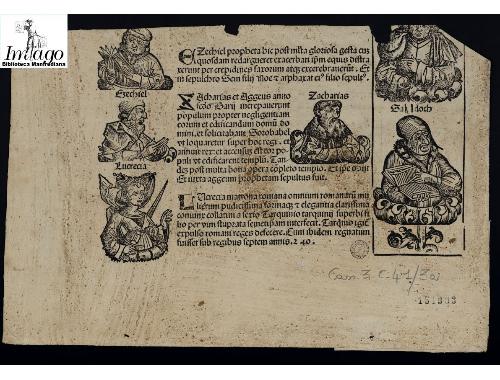 Imago
Biblioteca Manfrediana
EZechiel propheta hic post mĺta gloriosa gesta cũ
quosdam redargueret exacerban ipm equis distra
xerunt per crepidines saxorum atqz excerebrauerũt. E
in sepulchro Sem filij Noe et arphaxat
Ezechiel
Zacharias
ZAcharias et Aggeus anno
Darij increpauerunt
populum propter negligentiam
eorum et edificandam domũ do
mini. et solicitabant Sorobabel
vt loquaretur super hoc regi. et
et accensus est cor popu
li vt edificarent templũ. Tan
dez post multa bona opera completo templo.
Et iuxta aggeum prophetam sepultus fuit.
Lucrecia
LUcrecia matrona romana omnium romanarũ mu
lierum pudicissima formaqz et elegantia clarissima
coniunx collatini a sexto Tarquinio tarquinij superbi fi
lio per vim stuprata semetipsam interfecit. Tarqũio
expulso romani reges defecere. Cum ibidem regnatum
fuisset sub regibus septem annis. 240.
151333